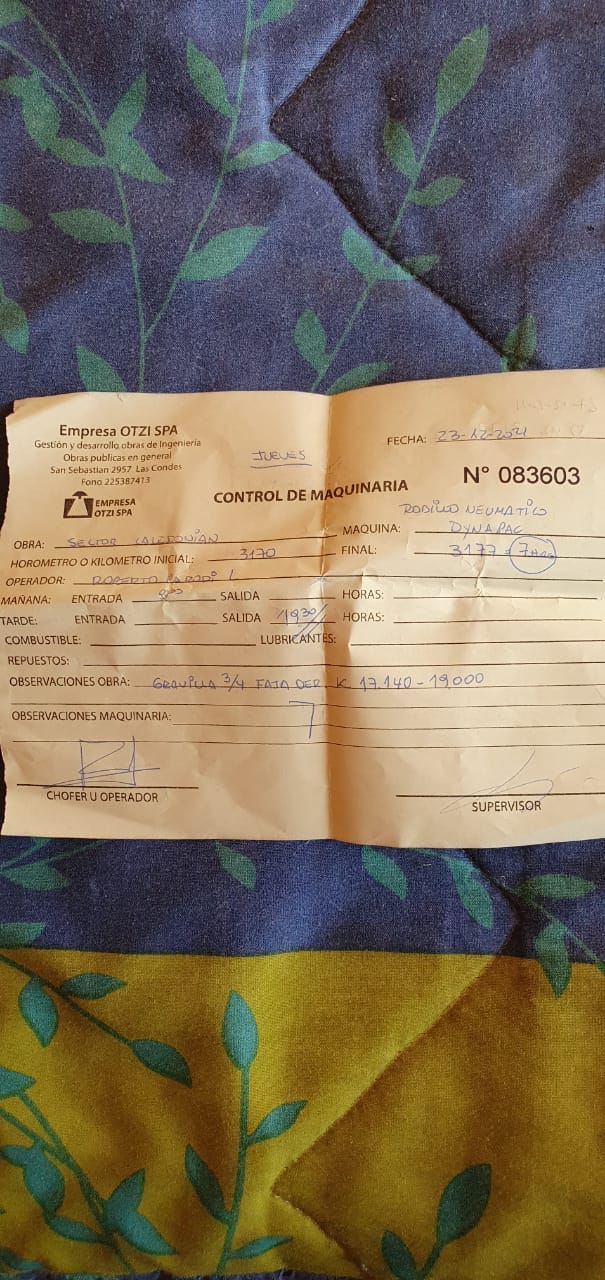 Empresa OTZI SPA
Gestión y desarrollo obras de Ingeniería
Obras publicas en general
San Sebastian 2957 Las Condes
Fono 225387413
EMPRESA
OTZI SPA
JUEVES
FECHA: 23-12-2021
N° 083603
CONTROL DE MAQUINARIA
RODILLO NEUMATICO
OBRA: SECTOR CALEDONIAN
MAQUINA: DYNAPAC
HOROMETRO O KILOMETRO INICIAL: 3170
FINAL: 3177 = 7 HRS
OPERADOR: ROBERTO PARODI L
MAÑANA: ENTRADA 8:00 SALIDA HORAS:
TARDE: ENTRADA SALIDA 19:30 HORAS:
COMBUSTIBLE: LUBRICANTES:
REPUESTOS:
OBSERVACIONES OBRA: GRAVILLA 3/4 FAJA DER K 17.140 - 19,000
OBSERVACIONES MAQUINARIA:
CHOFER U OPERADOR
SUPERVISOR